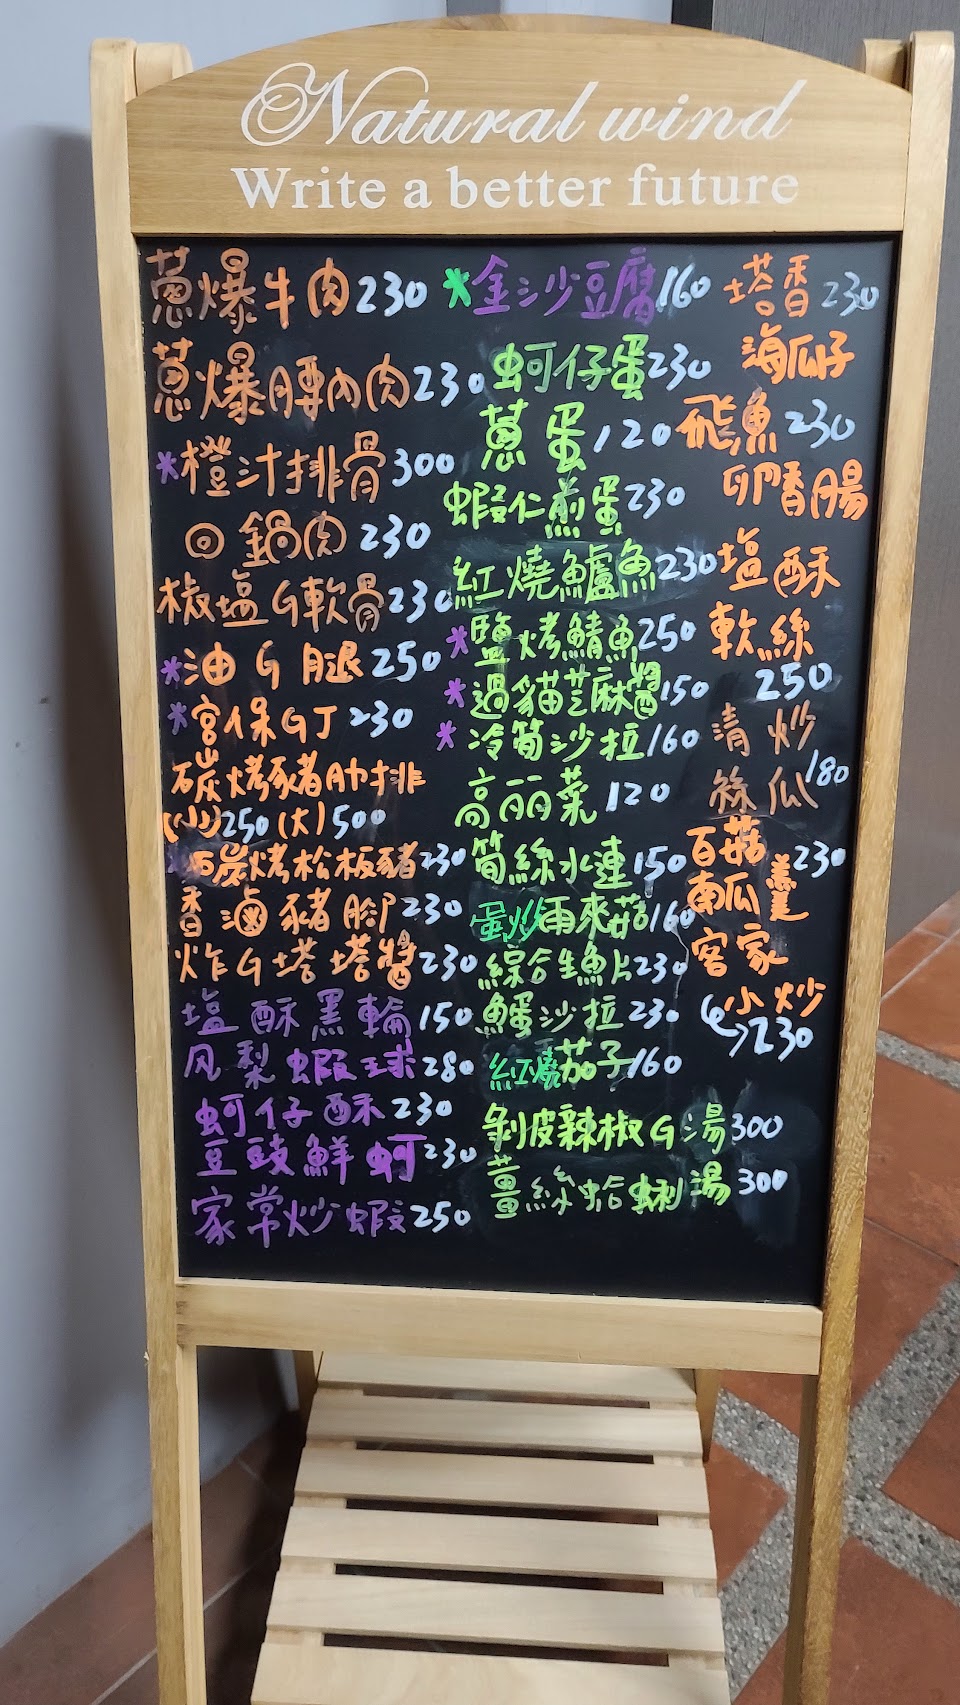 Natural wind
Write a better future
蔥爆牛肉230
蔥爆腰內肉230
*橙汁排骨300
回鍋肉230
椒塩G軟骨230
*油G腿250
*宮保GJ 230
碳烤豬肋排
(小)250(大)500
*碳烤松板豬230
香滷豬腳230
炸G塔塔醬230
塩酥黑輪150
凤梨蝦球280
蚵仔酥230
豆豉鮮蚵230
家常炒蝦250
*金沙豆腐160
蚵仔蛋230
蔥蛋120
蝦仁煎蛋230
紅燒鱸魚230
*鹽烤鯖魚250
*過貓芝麻醬150
*冷筍沙拉160
高丽菜120
筍絲水連150
蛋炒雨來菇160
綜合生魚片230
鱶沙拉230
紅燒茄子160
剝皮辣椒G湯300
薑絲蛤蜊湯300
塔香230
海瓜子
飛魚230
卵香腸
塩酥
軟絲
250
清炒
絲瓜180
百菇
南瓜羹230
客家
小炒
230